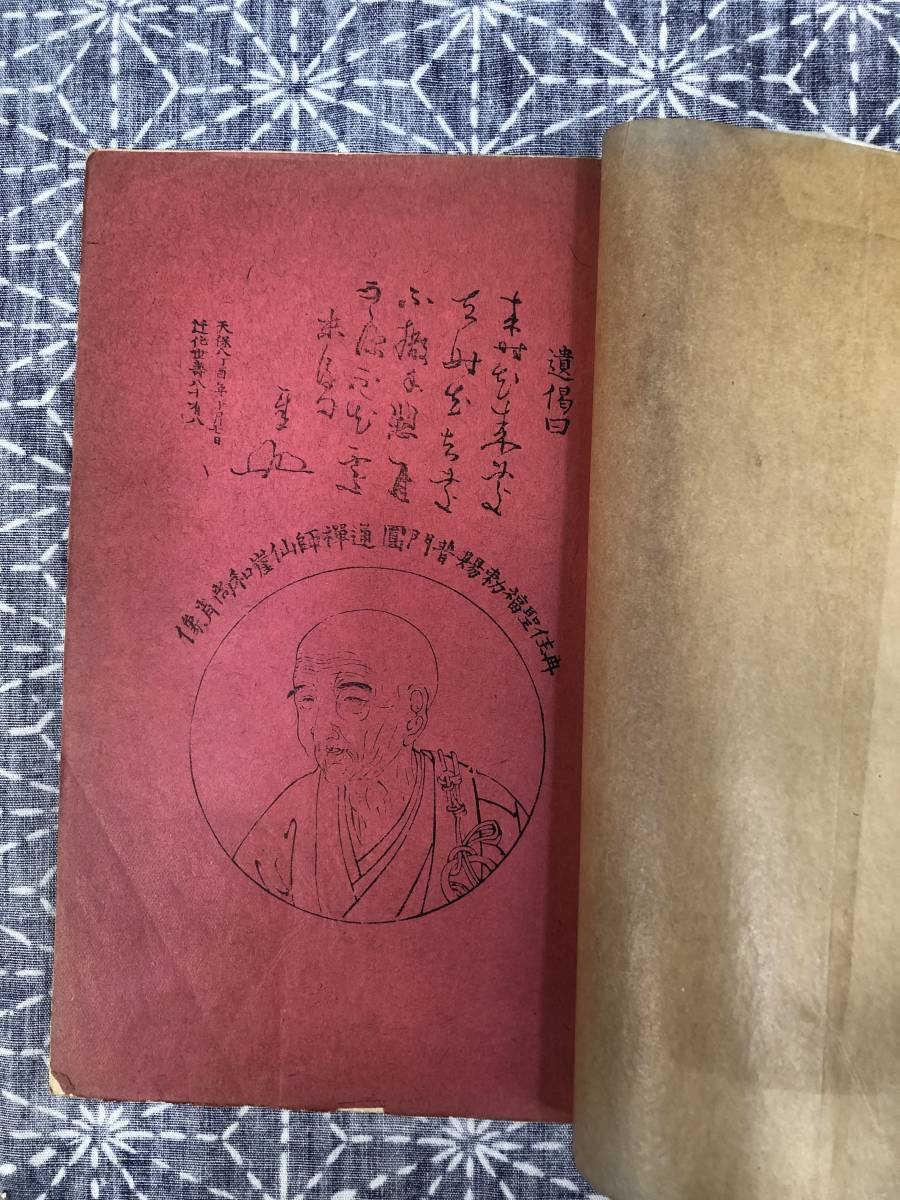 遺偈曰
来時知来處
去時知去處
不撒手懸厓
雲深不知處
末後句
天保八丁酉年十月七日
迁化世壽八十有八
再住聖福勅賜普門圓通禪師仙崖和尚肖像